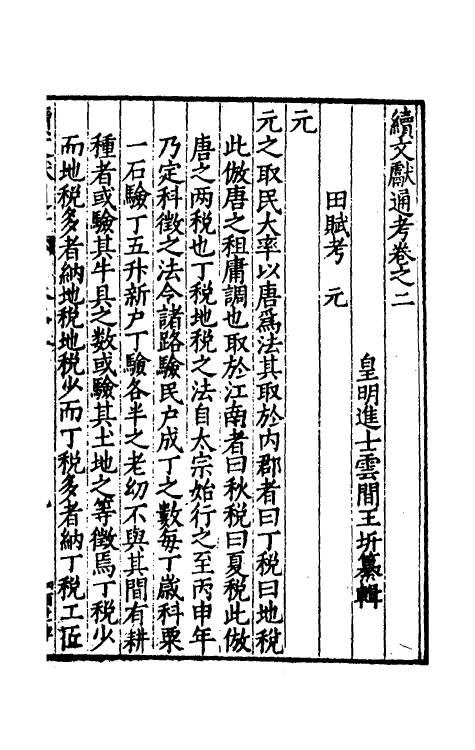 續文獻通考卷之二
皇明進士雲間王圻纂輯
田賦考　元
元
元之取民大率以唐爲法其取於内郡者曰丁税曰地税
此倣唐之租庸調也取於江南者曰秋税曰夏税此倣
唐之兩税也丁税地税之法自太宗始行之至丙申年
乃定科徵之法令諸路驗民户成丁之數每丁歲科粟
一石驗丁五升新户丁驗各半之老幼不與其間有耕
種者或驗其牛具之數或驗其土地之等徵焉丁税少
而地税多者納地税地税少而丁税多者納丁税工匠